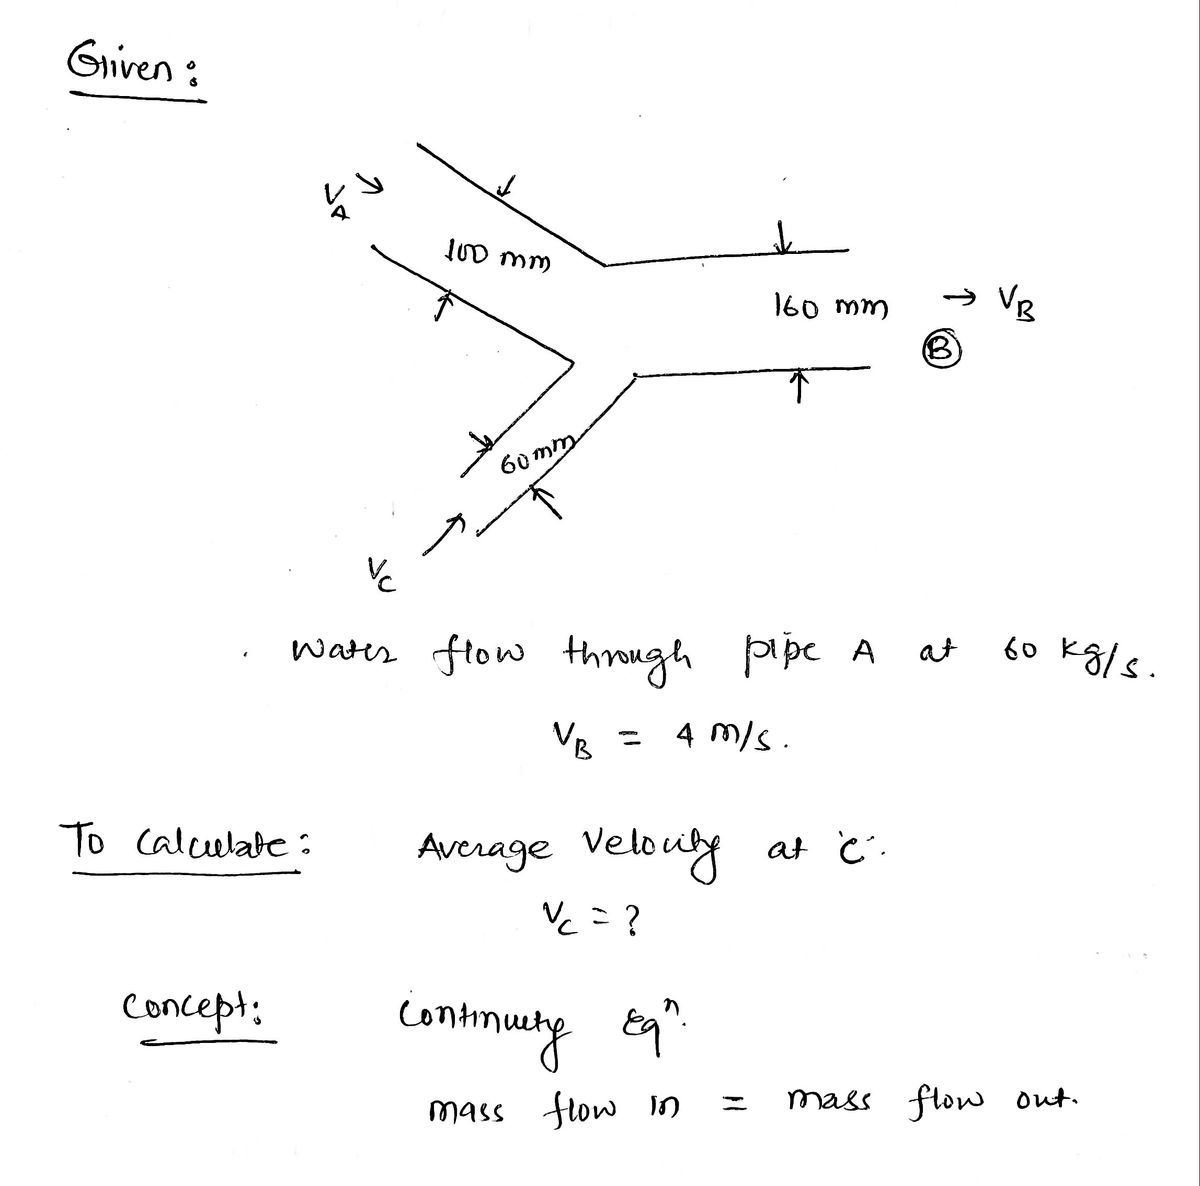 Given :
VA →
100 mm
160 mm → VB
B
60 mm
VC
Water flow through pipe A at 60 kg/s.
VB = 4 m/s.
To Calculate : Average Velocity at 'C'.
VC = ?
Concept: Continuity Eqn.
mass flow in = mass flow out.